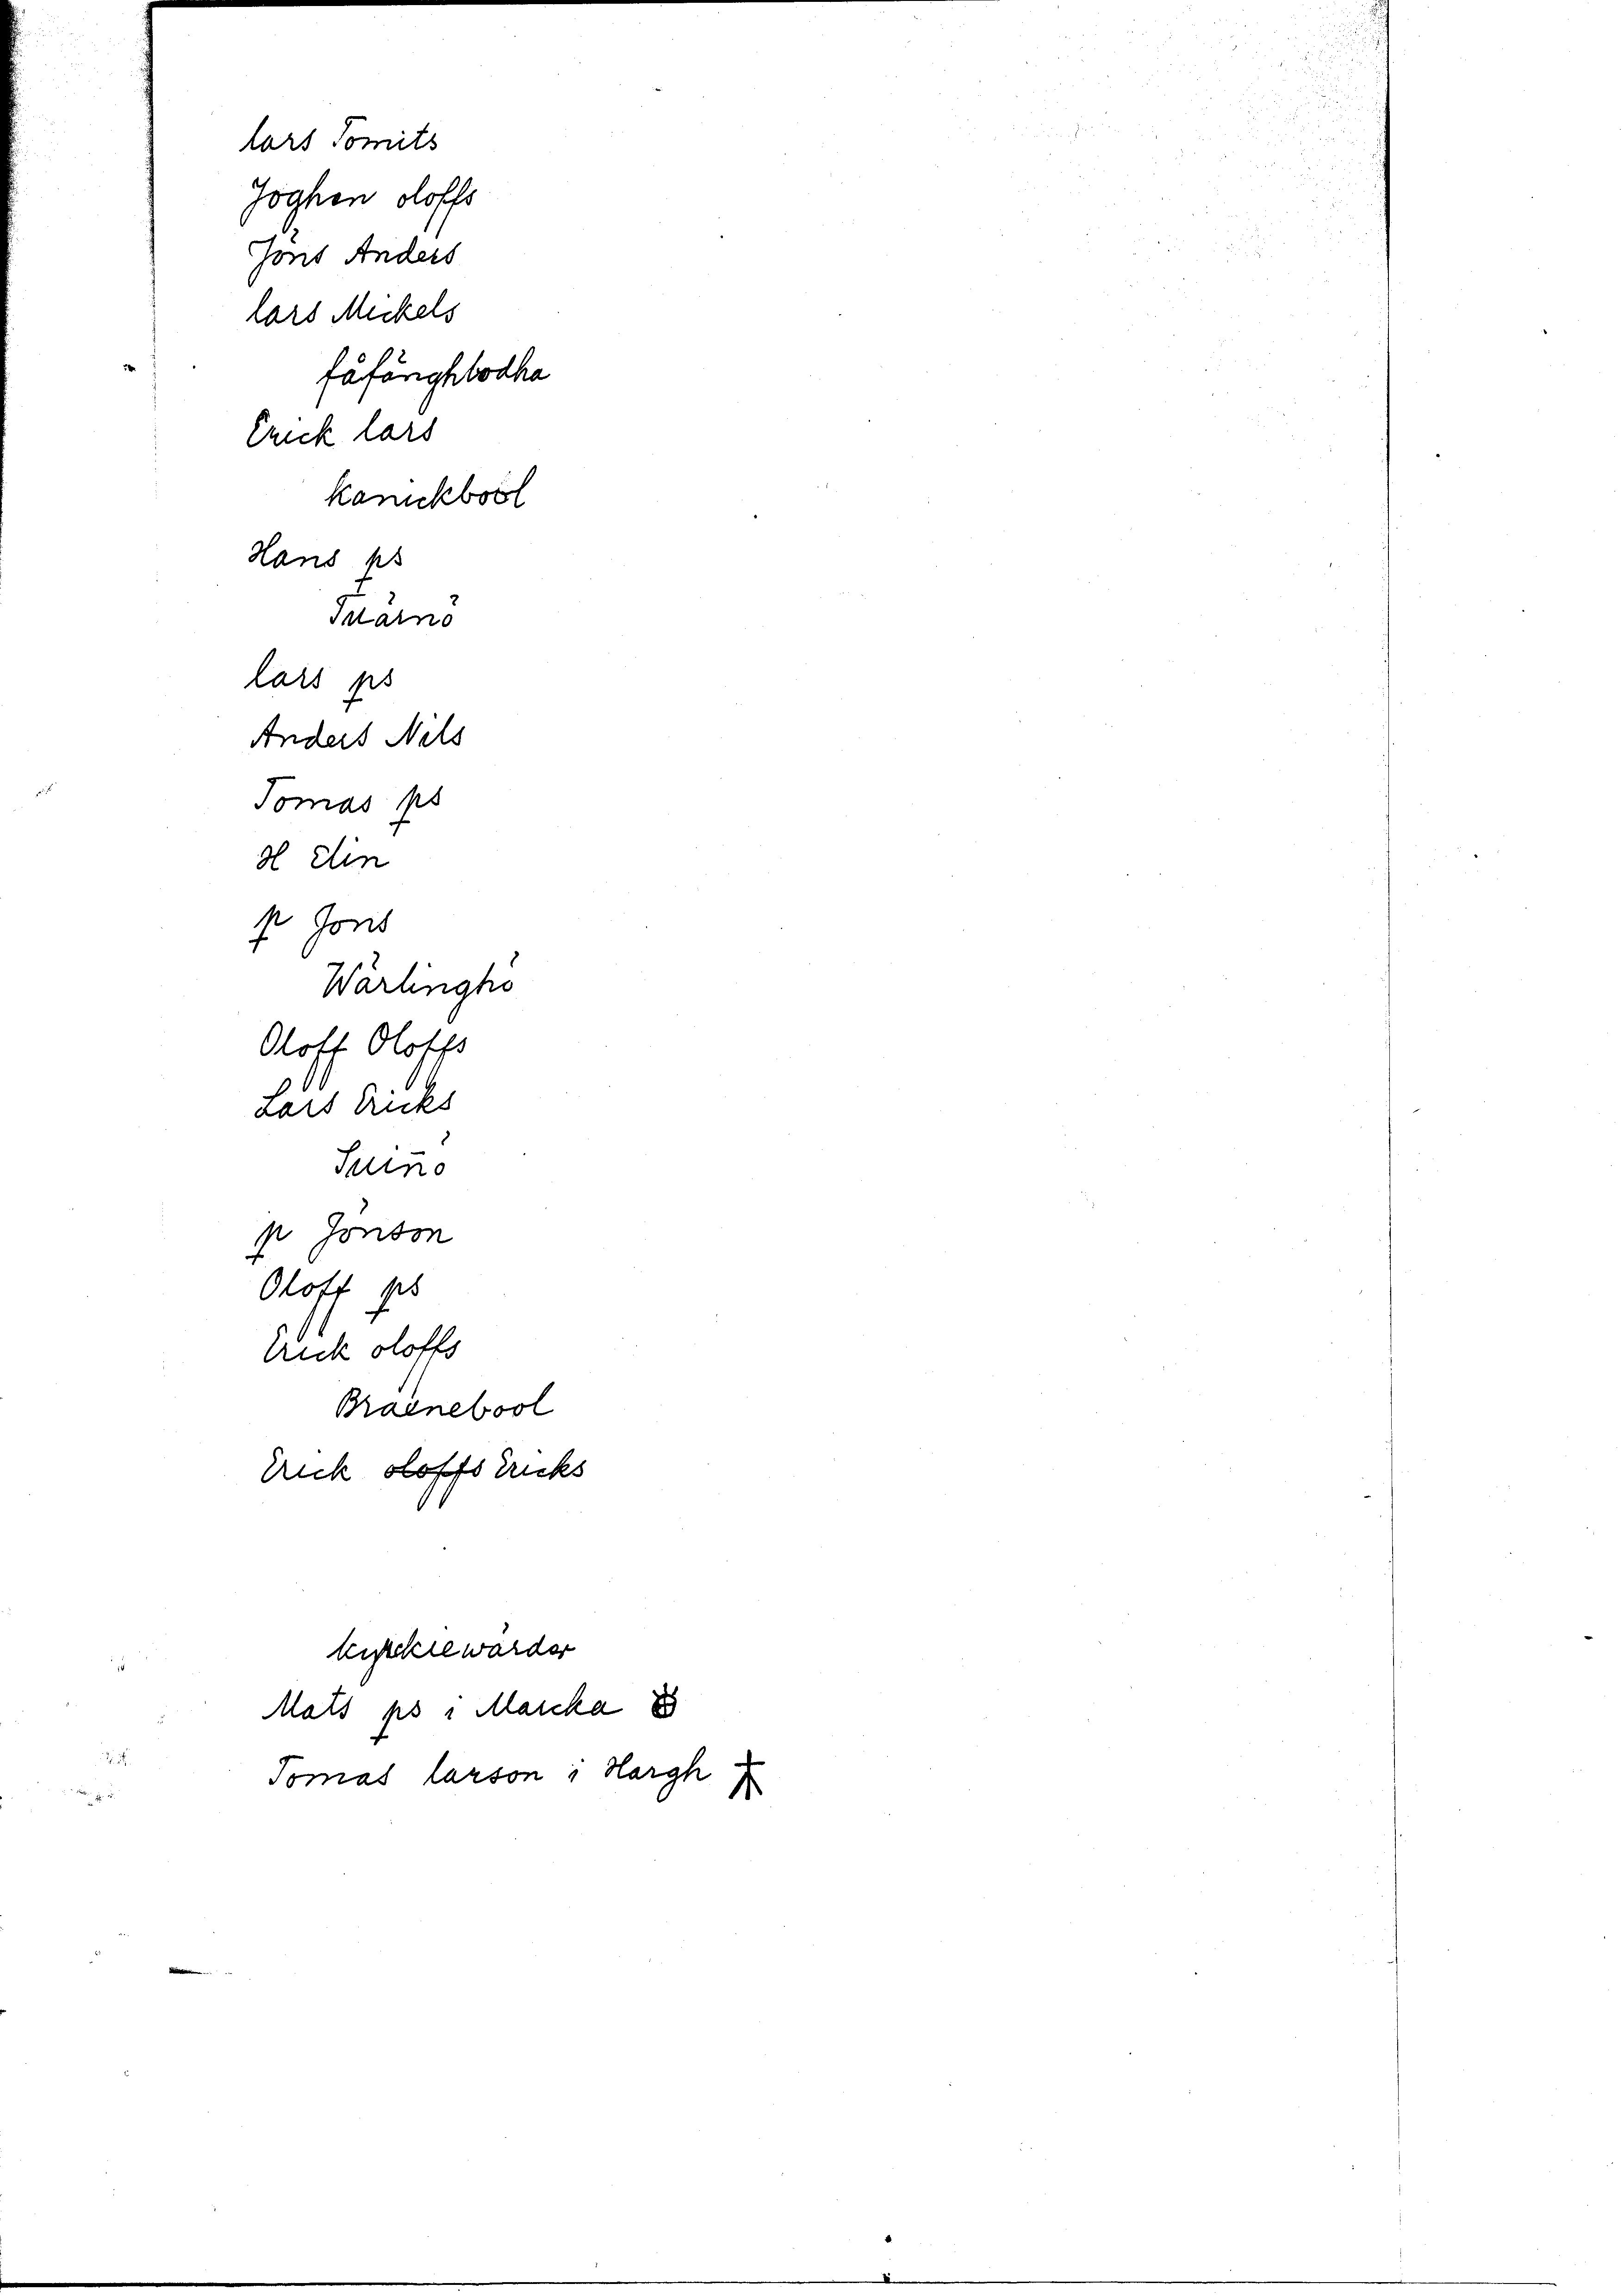 lars Tomits
Joghen oloffs
Jöns Anders
lars Mickels
fåfänghbodha
Erick lars
kanickbool
Hans ps
Tuärnö
lars ps
Anders Nils
Tomas ps
H Elin
p Jons
Wärlinghö
Oloff Oloffs
Lars Ericks
Suinö
p Jönson
Oloff ps
Erick oloffs
Braenebool
Erick oloffs Ericks
kyrckiewärder
Mats ps i Marcka
Tomas larson i Hargh